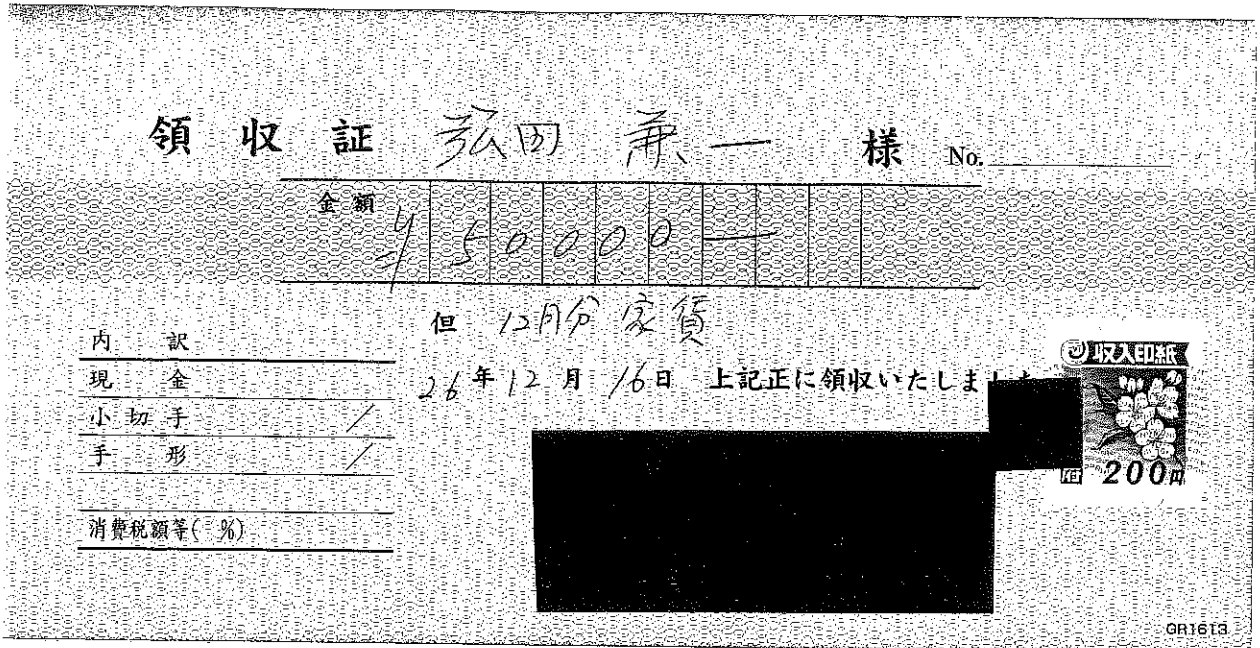 領収証 弘田 兼一 様 No.
金額 ¥50000—
但 12月分家賃
26年12月16日 上記正に領収いたしまし
内訳
現金
小切手 /
手形 /
消費税額等( %)
収入印紙
200円
GR1613